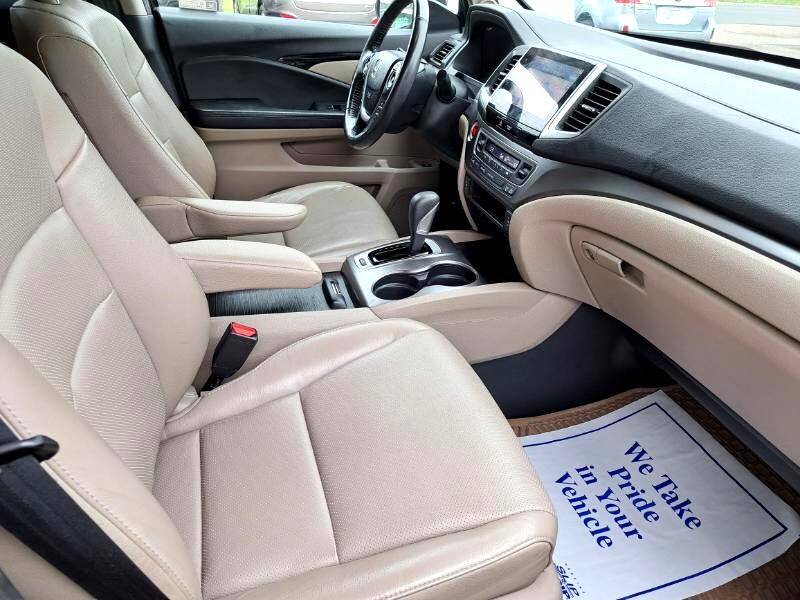 We Take
Pride
in Your
Vehicle
SLIP